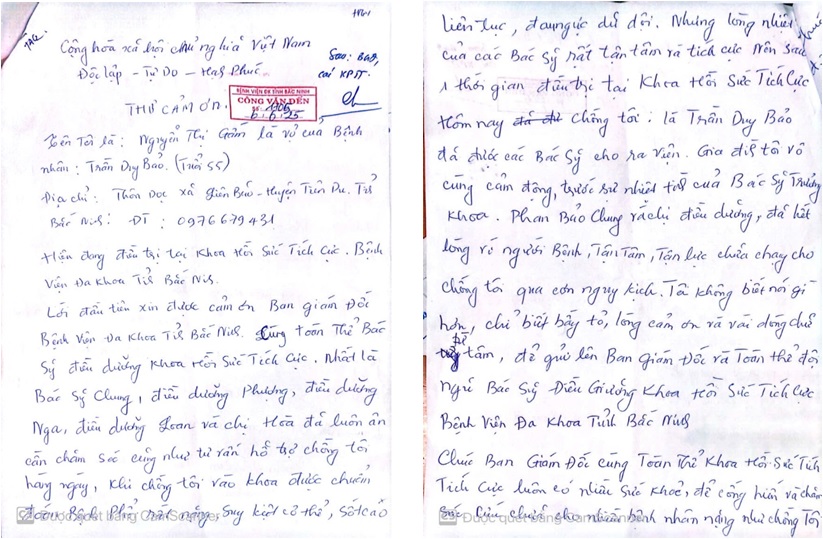 Cộng hòa xã hội chủ nghĩa Việt Nam
Độc lập - Tự Do - Hạnh Phúc.
Sao: BGĐ,
THƯ CẢM ƠN.
BỆNH VIỆN ĐK TỈNH BẮC NINH
CÔNG VĂN ĐẾN
Tên Tôi là: Nguyễn Thị Gấm là vợ của Bệnh
nhân: Trần Duy Bảo. (Tuổi 55)
Địa chỉ: Thôn Dọc xã Liên Bão - Huyện Tiên Du. Tỉnh
Bắc Ninh: ĐT: 0976679431
Hiện đang điều trị tại Khoa Hồi Sức Tích Cực. Bệnh
Viện Đa Khoa Tỉnh Bắc Ninh.
Lời đầu tiên xin được cảm ơn Ban giám Đốc
Bệnh Viện Đa Khoa Tỉnh Bắc Ninh. Cùng toàn Thể Bác
Sỹ điều dưỡng Khoa Hồi Sức Tích Cực. Nhất là
Bác Sỹ Chung, điều dưỡng Phượng, điều dưỡng
Nga, điều dưỡng Loan và chị Hòa đã luôn ân
cần chăm sóc cũng như tư vấn hỗ trợ chồng tôi
hàng ngày, Khi chồng tôi vào khoa được chuẩn
đoán Bệnh Phổi rất nặng, suy kiệt cơ thể, sốt cao
Được quét bằng CamScanner
liên tục, đau ngực dữ dội. Nhưng lòng nhiệt
của các Bác Sỹ rất tận tâm và tích cực Nên sau
1 thời gian điều trị tại Khoa Hồi Sức Tích Cực
Hôm nay chồng tôi: là Trần Duy Bảo
đã được các Bác Sỹ cho ra viện. Gia đình tôi vô
cùng cảm động, trước sự nhiệt tình của Bác Sỹ Trưởng
Khoa. Phan Bảo Chung và chị điều dưỡng, đã hết
lòng vì người Bệnh, Tận Tâm, Tận lực chữa chạy cho
chồng tôi qua cơn nguy kịch. Tôi không biết nói gì
hơn, chỉ biết bày tỏ, lòng cảm ơn và vài dòng chữ
tâm, để gửi lên Ban Giám Đốc và Toàn thể đội
ngũ Bác Sỹ Điều Giưỡng Khoa Hồi Sức Tích Cực
Bệnh Viện Đa Khoa Tỉnh Bắc Ninh
Chúc Ban Giám Đốc cùng Toàn Thể Khoa Hồi Sức Tích
Tích Cực luôn có nhiều Sức Khoẻ, để cống hiến và chăm
sóc Cứu chữa cho nhiều bệnh nhân nặng như chồng Tôi
Được quét bằng CamScanner